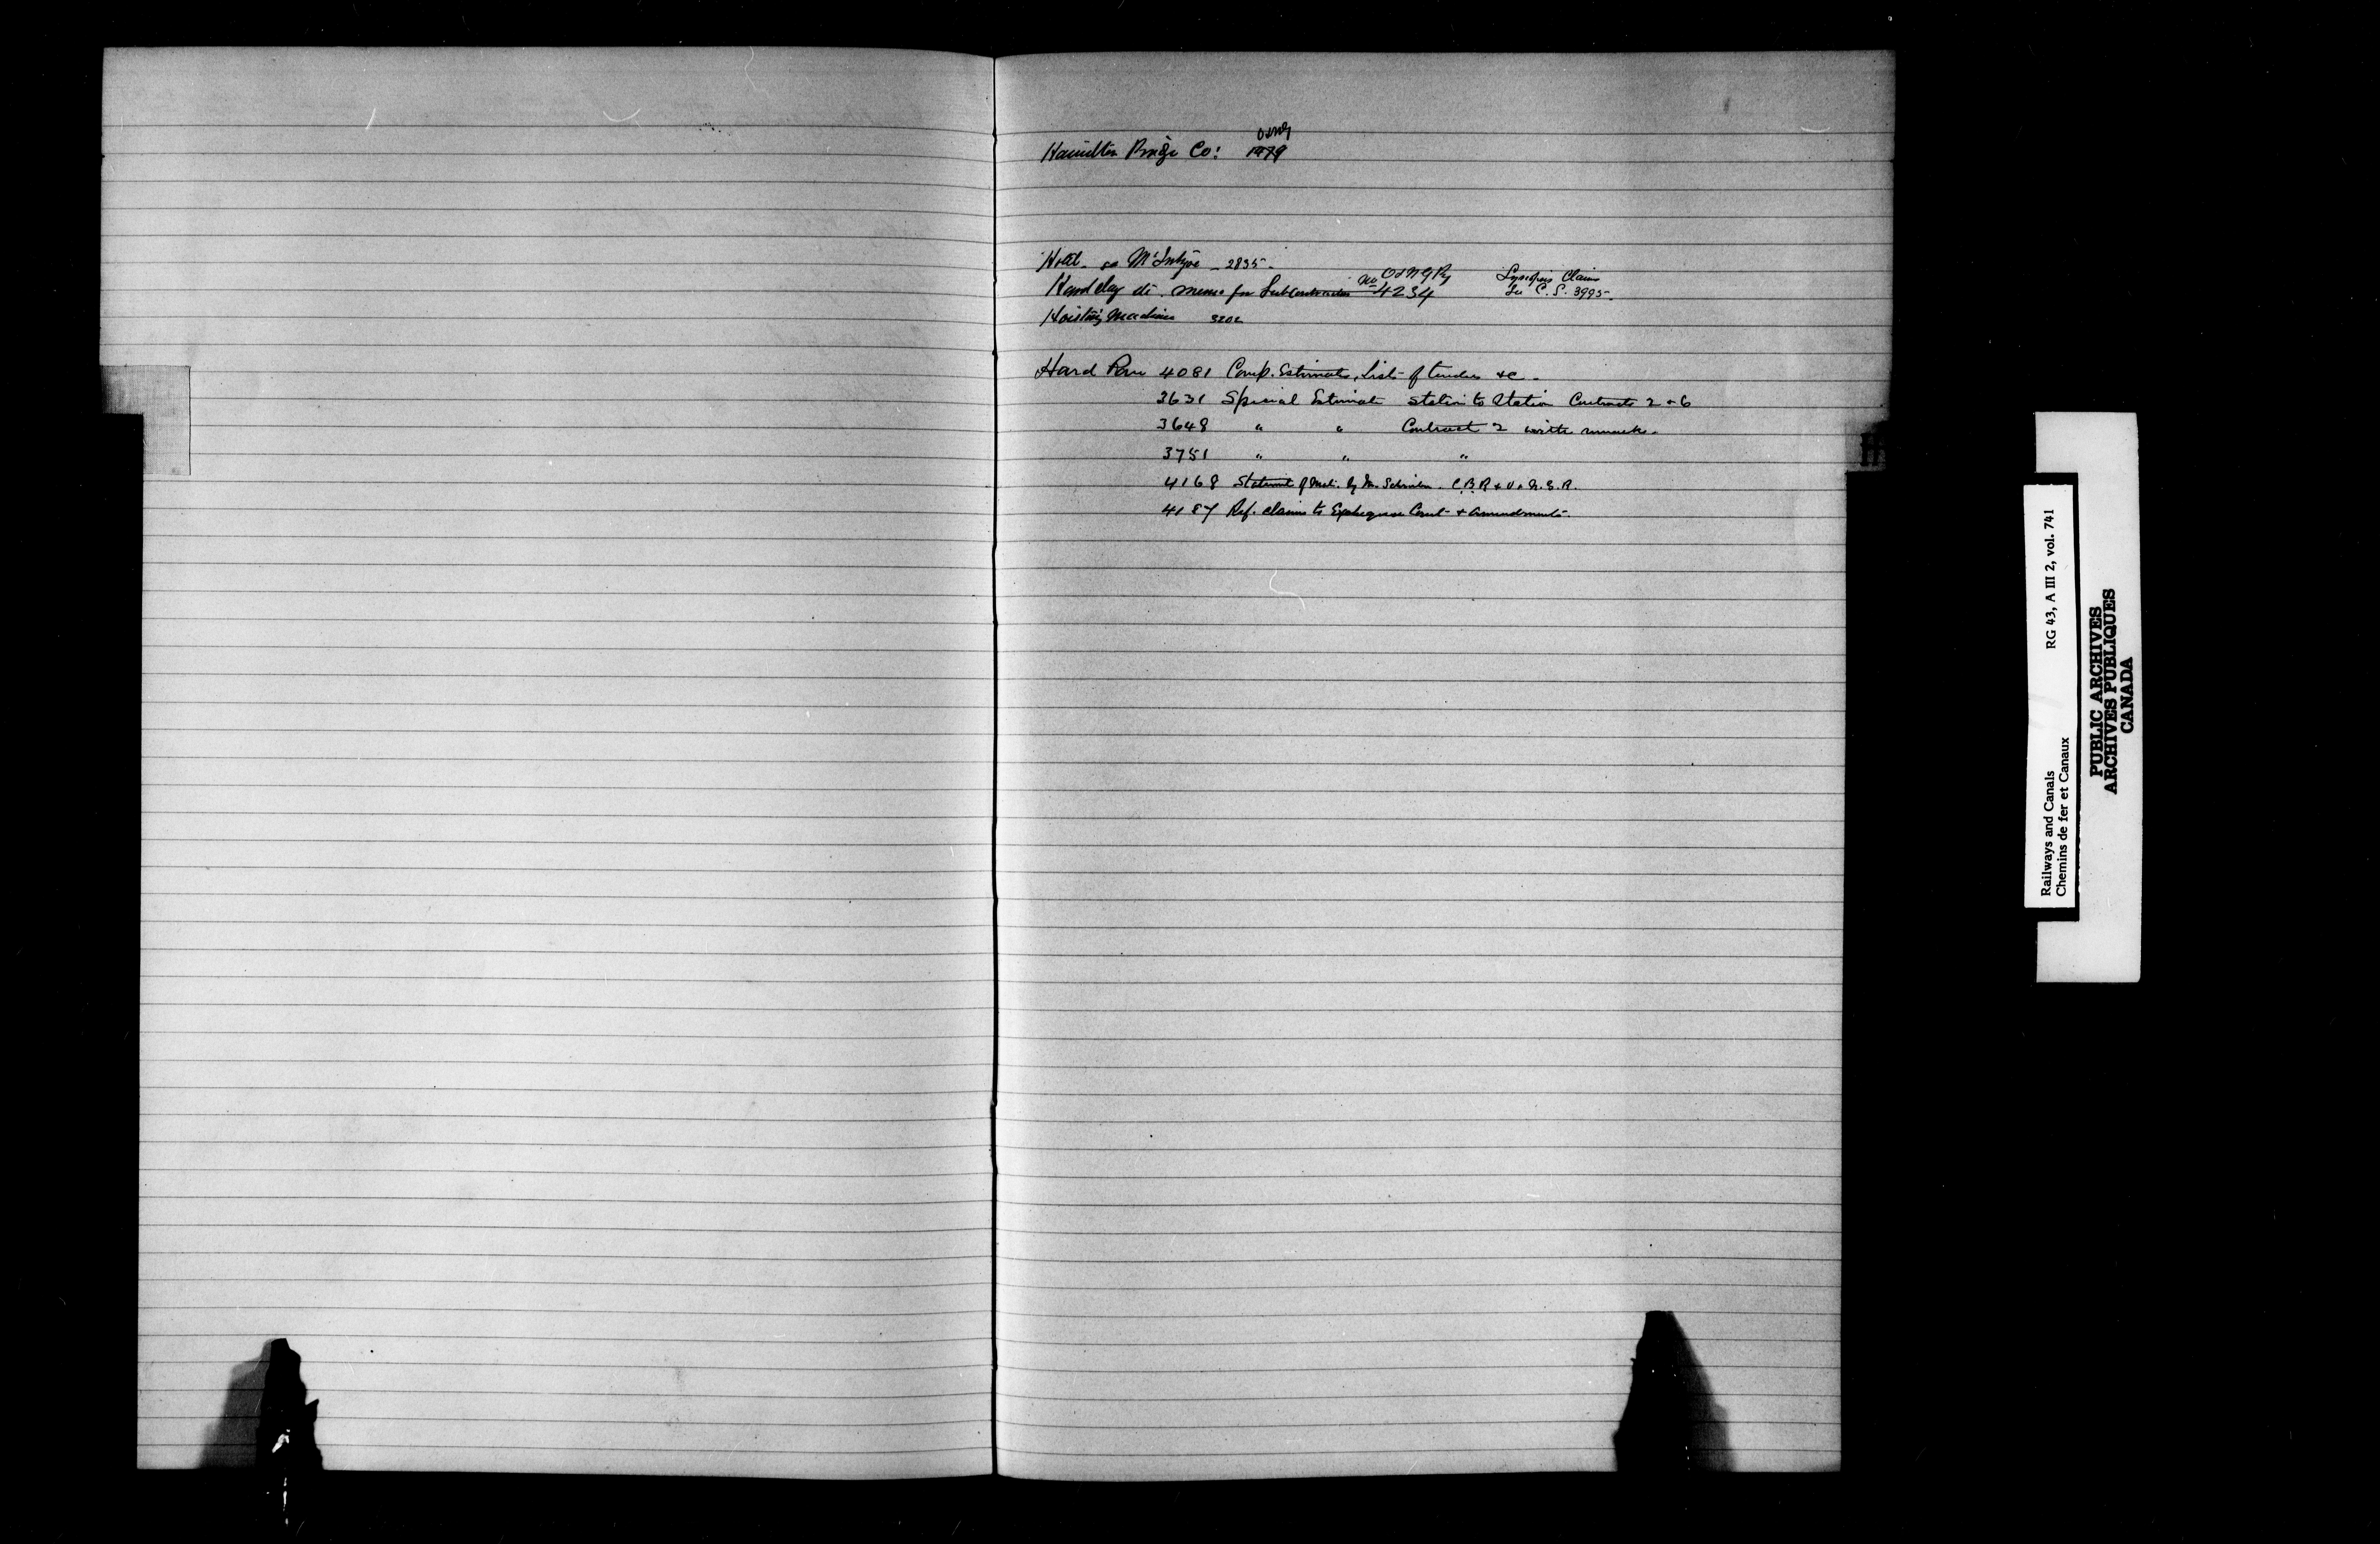 O & N Ry
Hamilton Bridge Co: 1479
Hotel. so McIntyre - 2835 -
Hand lay memo for Subcontractor No 4234 O & N Q Ry Synopsis Claim
See C. S. 3995 -
Hoisting Machines 3202
Hard Pan 4081 Comp. Estimate, List of tenders &c -
3631 Special Estimate Station to Station Contracts 2 & 6
3648 " " Contract 2 with remarks -
3751 " " "
4168 Statement of by Mr. Schreiber. C. B. R &
4187 Ref. claims to Exchequer Court & amendments -
H
Railways and Canals RG 43, A III 2, vol. 741
Chemins de fer et Canaux
PUBLIC ARCHIVES
ARCHIVES PUBLIQUES
CANADA